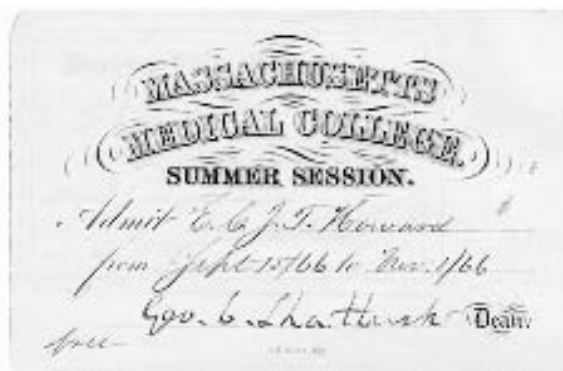 MASSACHUSETTS
MEDICAL COLLEGE.
SUMMER SESSION.
Admit E. C. J. T. Howard
from Sept 15/66 to Nov. 1/66
Geo. C. Shattuck Dean.
free